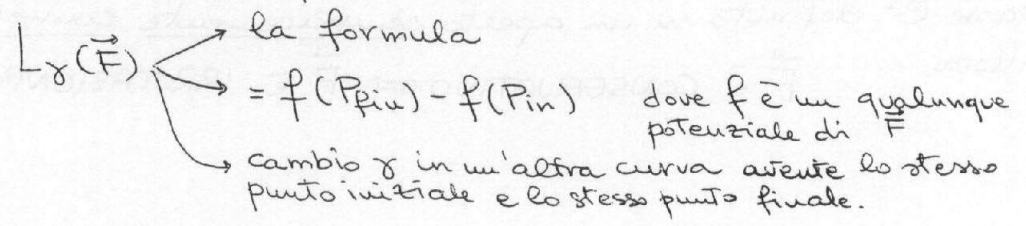 L_γ(F⃗) → la formula
→ = f(P_fin) - f(P_in) dove f è un qualunque
potenziale di F⃗
→ cambio γ in un'altra curva avente lo stesso
punto iniziale e lo stesso punto finale.